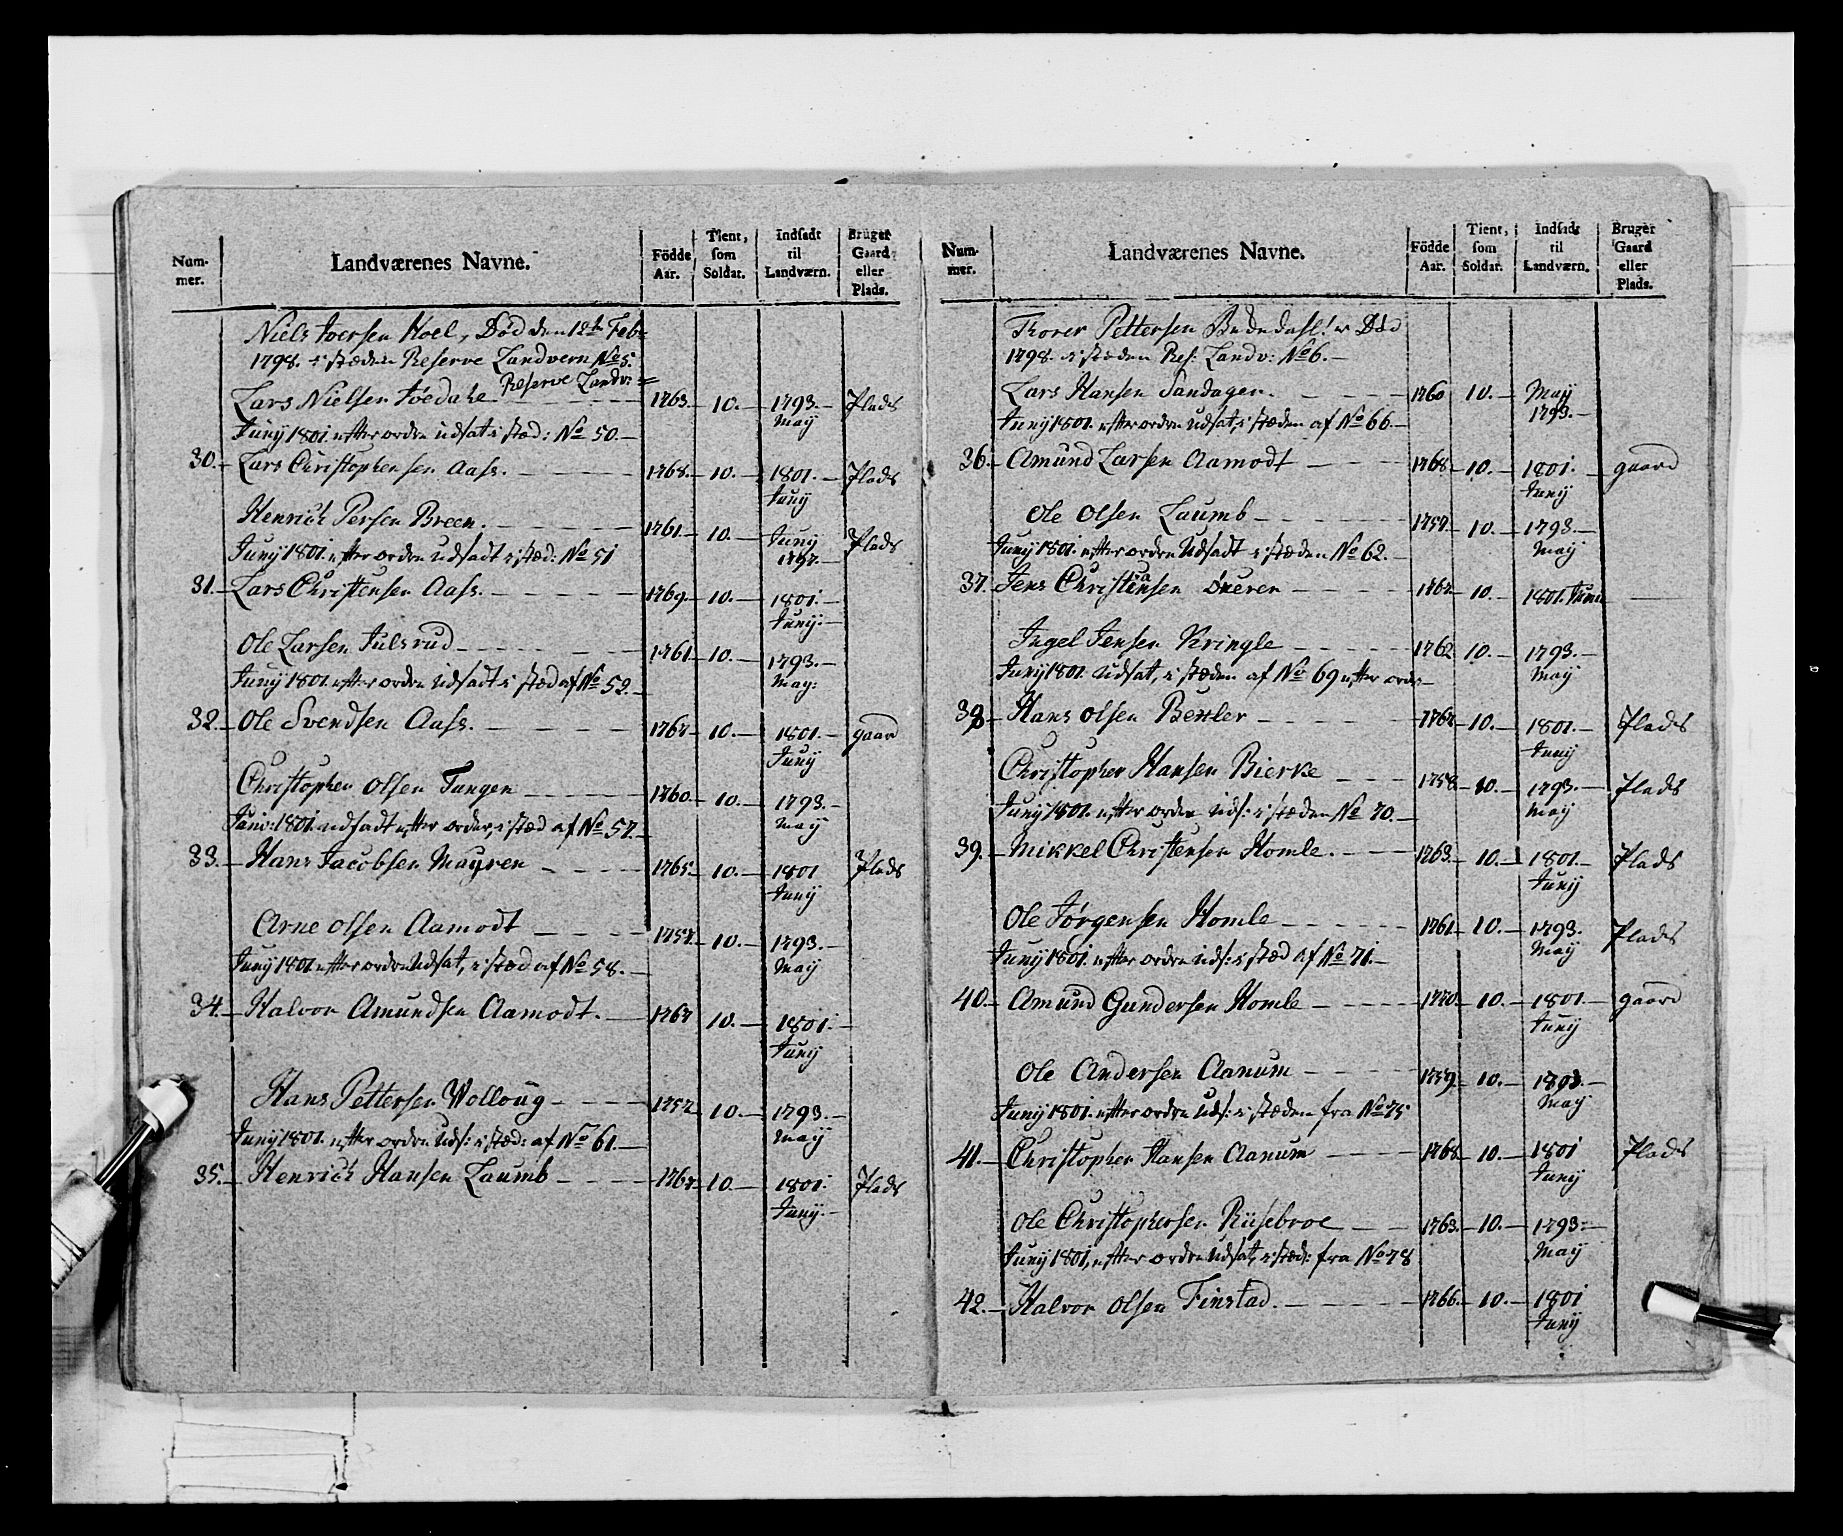 Num-mer. Landværenes Navne. Födde Aar. Tient, som Soldat. Indsadt til Landværn. Bruger Gaard eller Plads.
Niels Iversen Hoel, Död den 12te Feb=
1798. i stæden Reserve Landvern No 5.
Reserve Landv:=
Lars Nielsen 1763. 10. 1793. May Plads
Junij 1801. efter ordre udsat i stæd: No 50.
30. Lars Christophersen Aass. 1768. 10. 1801. Junij Plads
Henrich Persen Breen. 1761. 10. Junij 1797. Plads
Junij 1801. efter ordre udsadt i stæd: No 51
31. Lars Christensen Aass. 1769. 10. 1801. Junij.
Ole Larsen Julsrud 1761 10. 1793. May:
Junij 1801. efter ordre udsadt i stæd af No 52.
32. Ole Svendsen Aass. 1767. 10. 1801. Junij gaard
Christopher Olsen Tangen 1760. 10. 1793. May
Juni: 1801. udsadt efter order, i stæd af No 57.
33. Hans Jacobsen Mayren 1765. 10. 1801 Junij Plads
Arne Olsen Aamodt 1757. 10. 1793. May
Junij 1801 efter ordre udsat, i stæd af No 58.
34. Halvor Amundsen Aamodt. 1767 10. 1801. Junij
Hans Pettersen Wolloug 1757 10. 1793. May
Junij 1801. efter ordre uds: i stæd: af No 61.
35. Henrich Hansen Laumb 1767. 10. 1801. Junij. Plads
Num-mer. Landværenes Navne. Födde Aar. Tient, som Soldat. Indsadt til Landværn. Bruger Gaard eller Plads.
Thorer Pettersen er Död
1798. i stæden Res: Landv: No 6.
Lars Hansen Sandager. 1760 10. May 1793.
Junij 1801. efter ordre udsat, i stæden af No 66.
36. Amund Larsen Aamodt 1768. 10. 1801. Junij gaard
Ole Olsen Laumb 1757. 10. 1793. May
Junij 1801. efter ordre Udsadt i stæden No 62.
37. Jens Christiansen Överen 1767. 10. 1801. Junij
Ingel Jensen Kringle 1762 10. 1793. May
Junij 1801. udsat, i stæden af No 69 efter ordr
38. Hans Olsen 1767 10. 1801. Junij Plads
Christopher Hansen Bierke 1758. 10. 1793. May Plads
Junij 1801. efter ordre uds: i stæden No 70.
39. Mikkel Christensen Homle. 1763. 10. 1801. Junij Plads
Ole Jörgensen Homle 1761. 10. 1793. May Plads
Junij 1801. efter ordre uds: i stæd af No 71.
40. Amund Gundersen Homle 1770. 10. 1801. Junij gaard
Ole Andersen Aanum 1759. 10. May
Junij 1801. efter ordre uds: i stæden fra No 75
41. Christopher Hansen Aanum 1768. 10. 1801 Junij Plads
Ole Christophersen Risebroe 1763. 10. 1793. May
Junij 1801, efter ordre udsat, i stæd: fra No 78
42. Halvor Olsen Finstad. 1766. 10. 1801 Junij